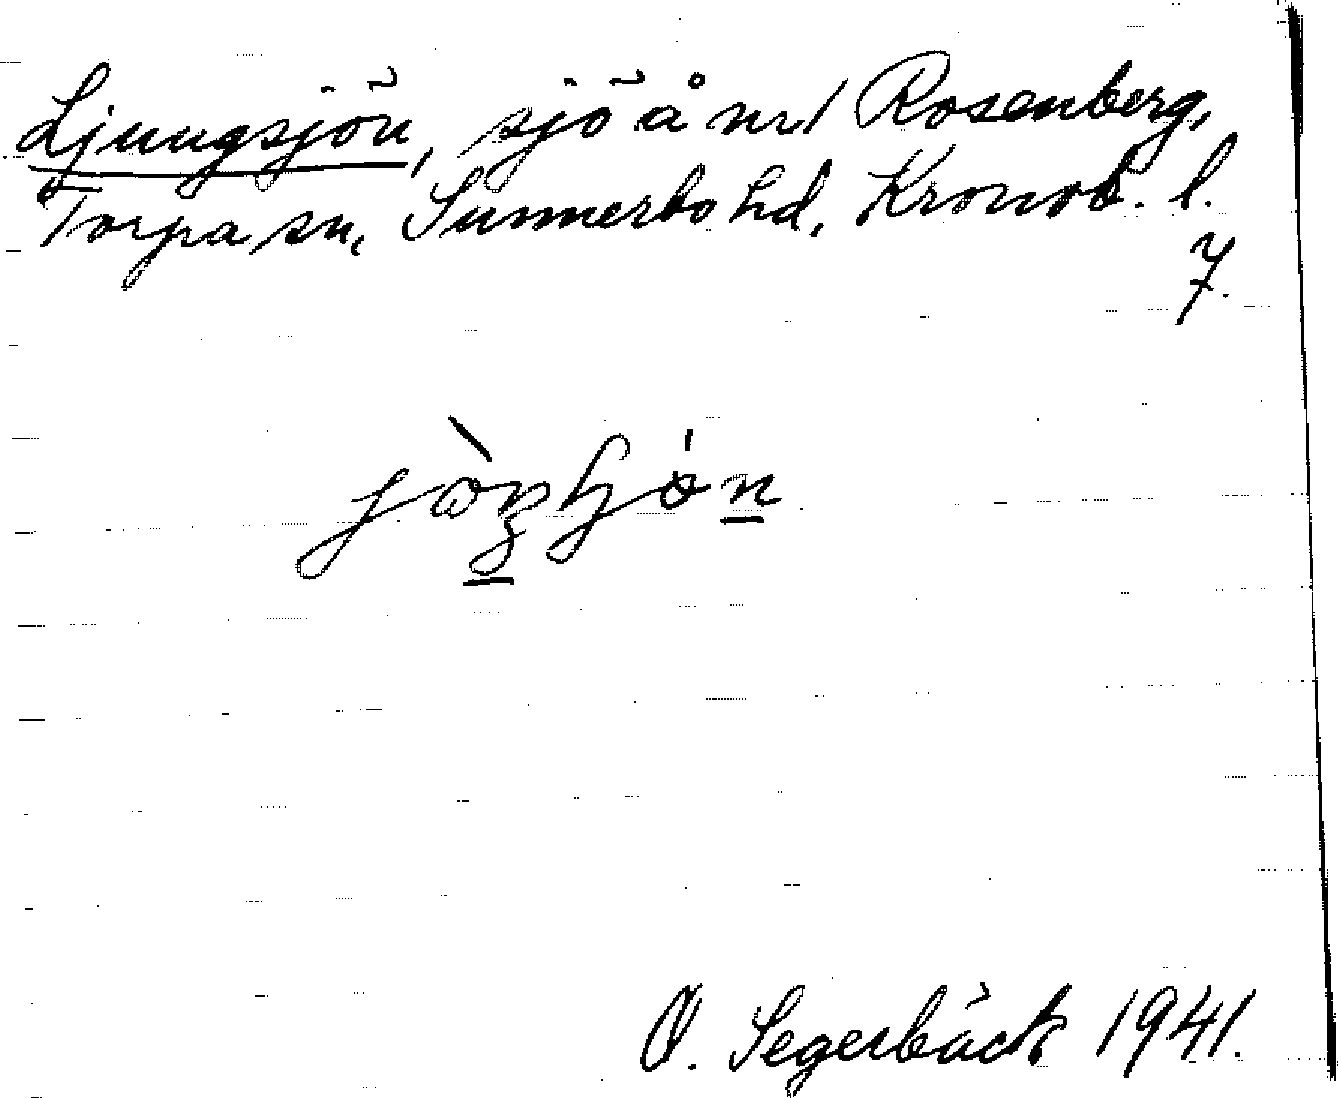 Ljungsjön, sjö å nr 1 Rosenberg,
Torpa sn, Sunnerbo hd, Kronob. l.
7.
O. Segerbäck 1941.